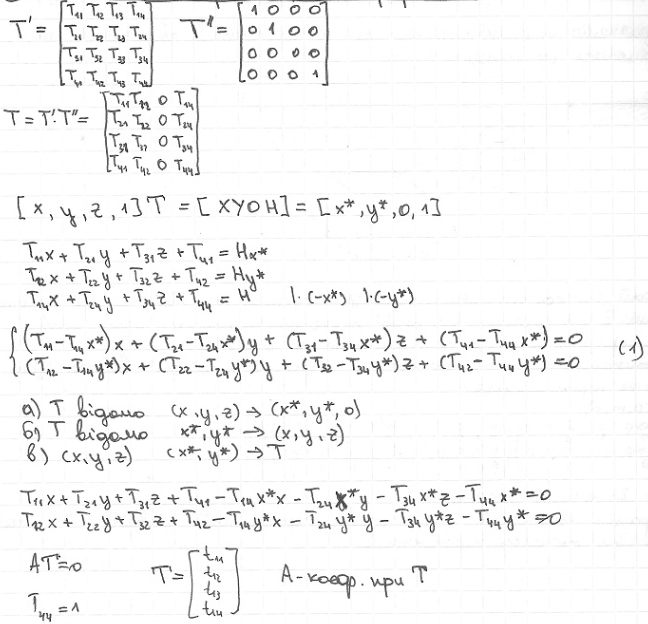 T' = [T₁₁ T₁₂ T₁₃ T₁₄
T₂₁ T₂₂ T₂₃ T₂₄
T₃₁ T₃₂ T₃₃ T₃₄
T₄₁ T₄₂ T₄₃ T₄₄]
T'' = [1 0 0 0
0 1 0 0
0 0 0 0
0 0 0 1]
T = T'·T'' = [T₁₁ T₁₂ 0 T₁₄
T₂₁ T₂₂ 0 T₂₄
T₃₁ T₃₂ 0 T₃₄
T₄₁ T₄₂ 0 T₄₄]
[x, y, z, 1] T = [X Y 0 H] = [x*, y*, 0, 1]
T₁₁x + T₂₁y + T₃₁z + T₄₁ = Hx*
T₁₂x + T₂₂y + T₃₂z + T₄₂ = Hy*
T₁₄x + T₂₄y + T₃₄z + T₄₄ = H |·(-x*) |·(-y*)
{(T₁₁-T₁₄x*)x + (T₂₁-T₂₄x*)y + (T₃₁-T₃₄x*)z + (T₄₁-T₄₄x*) = 0
(T₁₂-T₁₄y*)x + (T₂₂-T₂₄y*)y + (T₃₂-T₃₄y*)z + (T₄₂-T₄₄y*) = 0 (1)
а) T відомо (x, y, z) → (x*, y*, 0)
б) T відомо x*, y* → (x, y, z)
в) (x, y, z) (x*, y*) → T
T₁₁x + T₂₁y + T₃₁z + T₄₁ - T₁₄x*x - T₂₄x*y - T₃₄x*z - T₄₄x* = 0
T₁₂x + T₂₂y + T₃₂z + T₄₂ - T₁₄y*x - T₂₄y*y - T₃₄y*z - T₄₄y* = 0
AT = 0 T = [t₁₁
t₁₂
t₁₃
t₁₄] A - коеф. при T
T₄₄ = 1